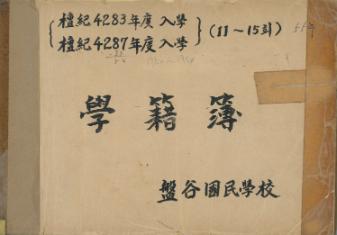 檀紀4283年度 入學
檀紀4287年度 入學
(11~15회)
學籍簿
盤谷國民學校